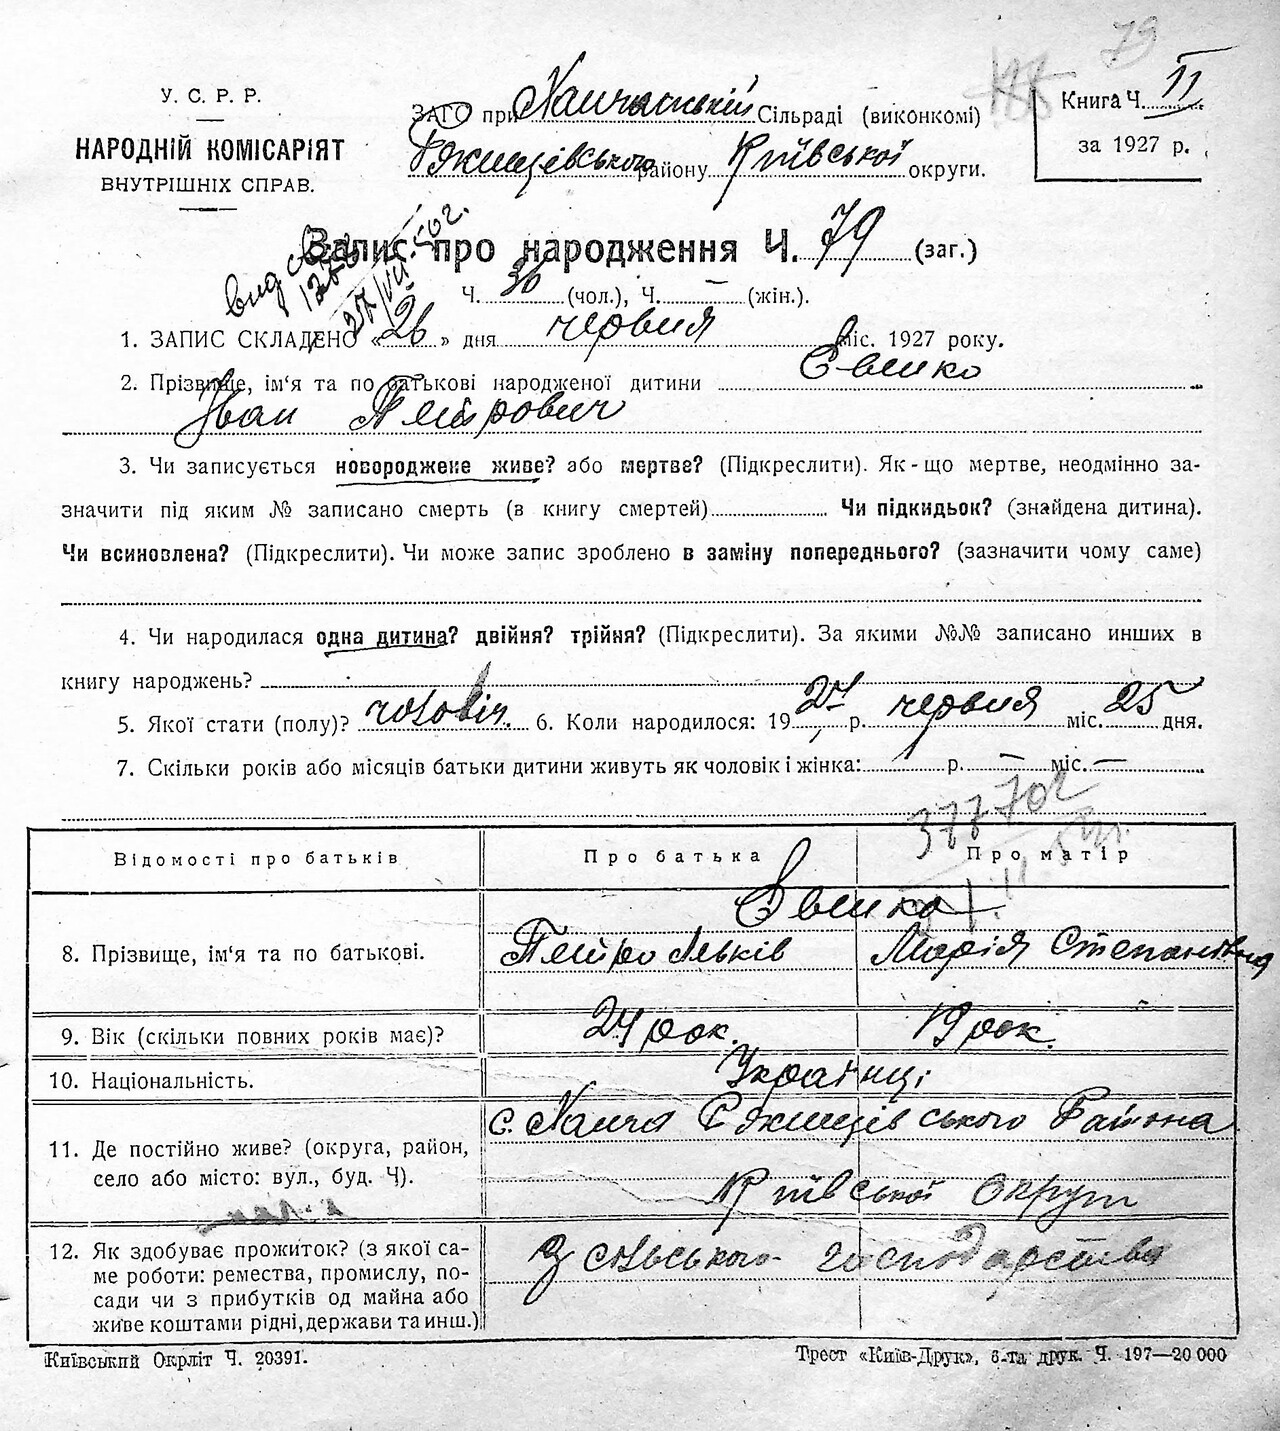 79
У. С. Р. Р.
НАРОДНІЙ КОМІСАРІЯТ
ВНУТРІШНІХ СПРАВ.
ЗАГС при Сільраді (виконкомі)
району Київської округи.
Книга Ч. II
за 1927 р.
Запис про народження Ч. 79 (заг.)
Ч. 36 (чол.), Ч. — (жін.).
1. ЗАПИС СКЛАДЕНО «26» дня червня міс. 1927 року.
2. Прізвище, ім'я та по батькові народженої дитини
Іван Петрович
3. Чи записується новороджене живе? або мертве? (Підкреслити). Як-що мертве, неодмінно за-
значити під яким № записано смерть (в книгу смертей) Чи підкидьок? (знайдена дитина).
Чи всиновлена? (Підкреслити). Чи може запис зроблено в заміну попереднього? (зазначити чому саме)
4. Чи народилася одна дитина? двійня? трійня? (Підкреслити). За якими №№ записано инших в
книгу народжень?
5. Якої стати (полу)? чоловіч. 6. Коли народилося: 1927 р. червня міс. 25 дня.
7. Скільки років або місяців батьки дитини живуть як чоловік і жінка: р. — міс. —
37770
Відомості про батьків Про батька Про матір
8. Прізвище, ім'я та по батькові.
Петро Марія Степанівна
9. Вік (скільки повних років має)? 24 рок. 19 рок.
10. Національність. Українці
11. Де постійно живе? (округа, район,
село або місто: вул., буд. Ч).
с. Району
Київської Округи
12. Як здобуває прожиток? (з якої са-
ме роботи: ремества, промислу, по-
сади чи з прибутків од майна або
живе коштами рідні, держави та инш.)
З сільського господарства
Київський Окрліт Ч. 20391.
Трест «Київ-Друк», 6-та друк. Ч. 197—20 000